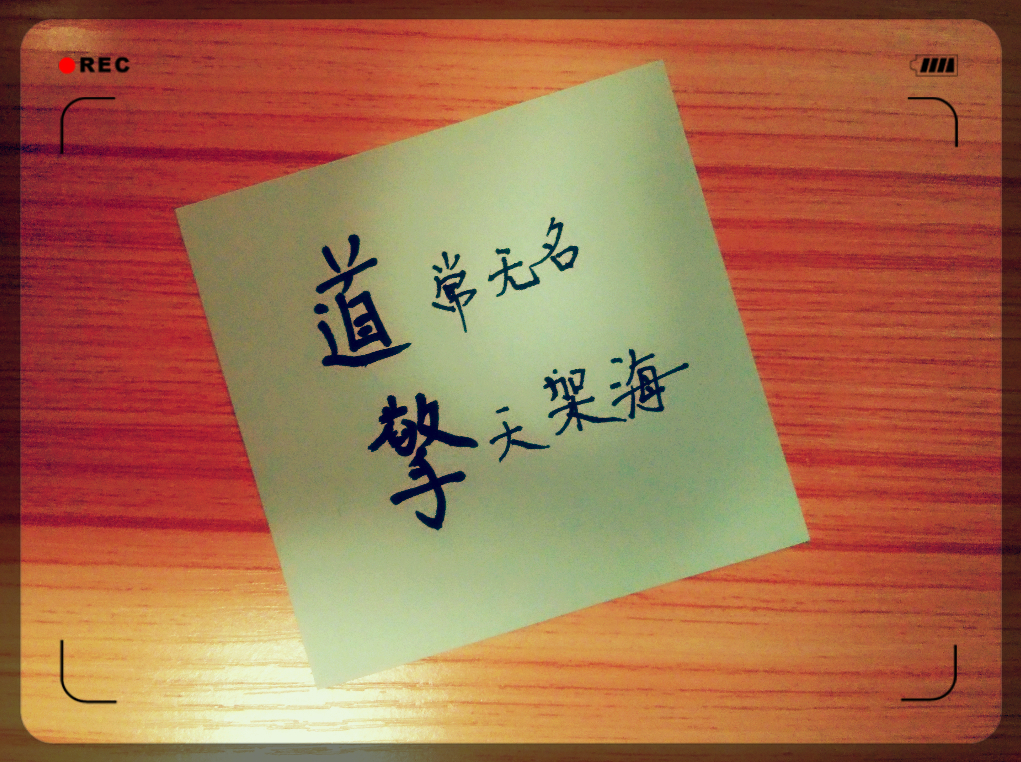 REC
道常无名
擎天架海